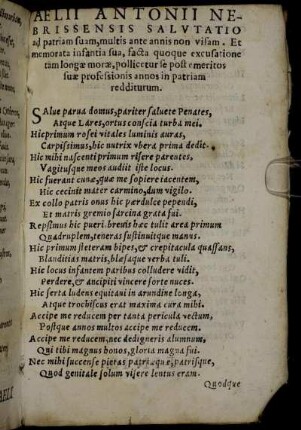 AELII ANTONII NE-
BRISSENSIS SALVTATIO
ad patriam suam, multis ante annis non visam. Et
memorata infantia sua, facta quoque excusatione
tam longæ moræ, pollicetur se post emeritos
suæ professionis annos in patriam
redditurum.
SAlue parua domus, pariter saluete Penates,
Atque Lares, ortus conscia turba mei.
Hic primum rosei vitales luminis auras,
Carpsimus, hic nutrix vbera prima dedit.
Hic mihi nascenti primum risere parentes,
Vagitusque meos audiit iste locus.
Hic fuerant cunæ, quæ me sopiere iacentem,
Hic cecinit mater carmina, dum vigilo.
Ex collo patris onus hic pædulce pependi,
Et matris gremio sarcina grata fui.
Repsimus hic pueri breuis hæc tulit area primum
Quadruplem, teneras sustinuitque manus.
Hic primum steteram bipes, & crepitacula quassans,
Blanditias matris, blæsaque verba tuli.
Hic locus infantem paribus colludere vidit,
Perdere, & ancipiti vincere forte nuces.
Hic serta ludens equitani in arundine longa,
Atque trochiscus erat maxima cura mihi.
Accipe me reducem per tanta pericula vectum,
Postque annos multos accipe me reducem.
Accipe me reducem, nec dedigneris alumnum,
Qui tibi magnus honos, gloria magna fui.
Nec mihi succense pietas patriæque, patrisque,
Quod genitale solum visere lentus eram.
Quodque